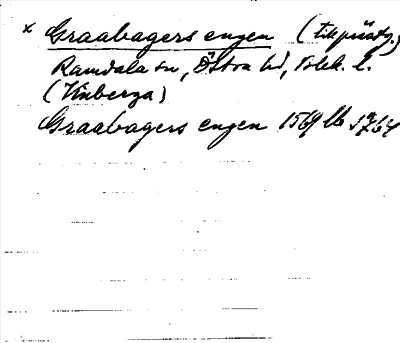 × Graabagers engen (till prästg.)
Ramdala sn, Östra hd, Blek. l.
(Vinberga)
Graabagers engen 1569 lb